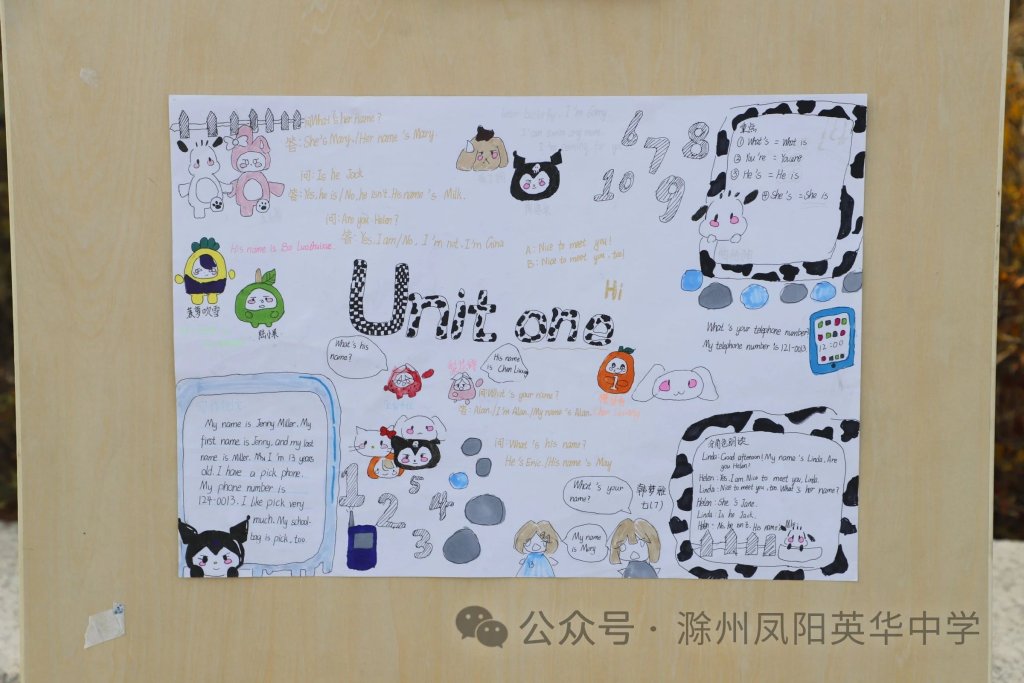 问What's her name?
答: She's Mary./Her name's Mary.
问: Is he Jack
答: Yes, he is/No, he isn't. His name's Milk.
问: Are you Helen?
答: Yes, I am/No, I'm not, I'm Gina
His name is Bo
菠萝吹雪
A: Nice to meet you!
B: Nice to meet you, too!
6 7 8
10 9
重点
① What's = What is
② You're = Youare
③ He's = He is
④ She's = She is
Unit one
Hi
What's your telephone number
My telephone number is 121-0013
12:00
What's his
name?
His name
is Chen
问What's your name?
答: Alan./I'm Alan./My name's Alan.
问: What's his name?
He's Eric./His name's May
1
My name is Jenny Miller. My
first name is Jenny, and my last
name is Miller. I'm 13 years
old. I have a pick phone.
My phone number is
124-0013. I like pick very
much. My school-
bag is pick, too.
1 2 3 4 5
What's your
name?
七(7)
My name
is Mary
分角色朗读
Linda: Good afternoon! My name's Linda. Are
you Helen?
Helen: Yes, I am. Nice to meet you, Linda.
Linda: Nice to meet you, too. What's her name?
Helen: She's Jane.
Linda: Is he Jack.
Helen: No, he isn't. His name
公众号 · 滁州凤阳英华中学